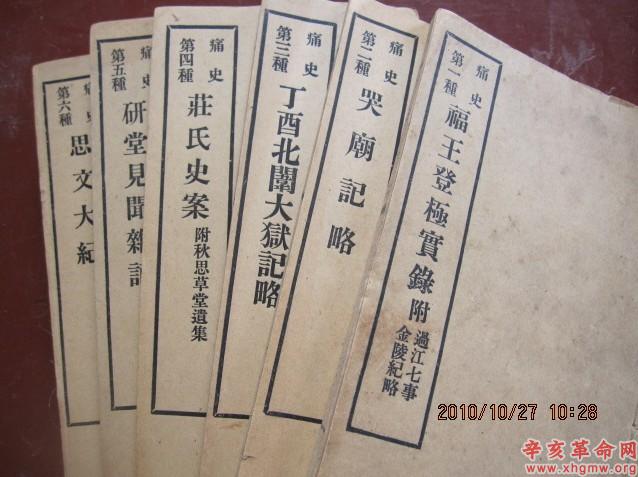 痛史
第一種
福王登極實錄附
過江七事
金陵紀略
痛史
第二種
哭廟記略
痛史
第三種
丁酉北闈大獄記略
痛史
第四種
莊氏史案
附秋思草堂遺集
痛史
第五種
研堂見聞雜記
痛史
第六種
思文大紀
2010/10/27 10:28
辛亥革命网
www.xhgmw.org